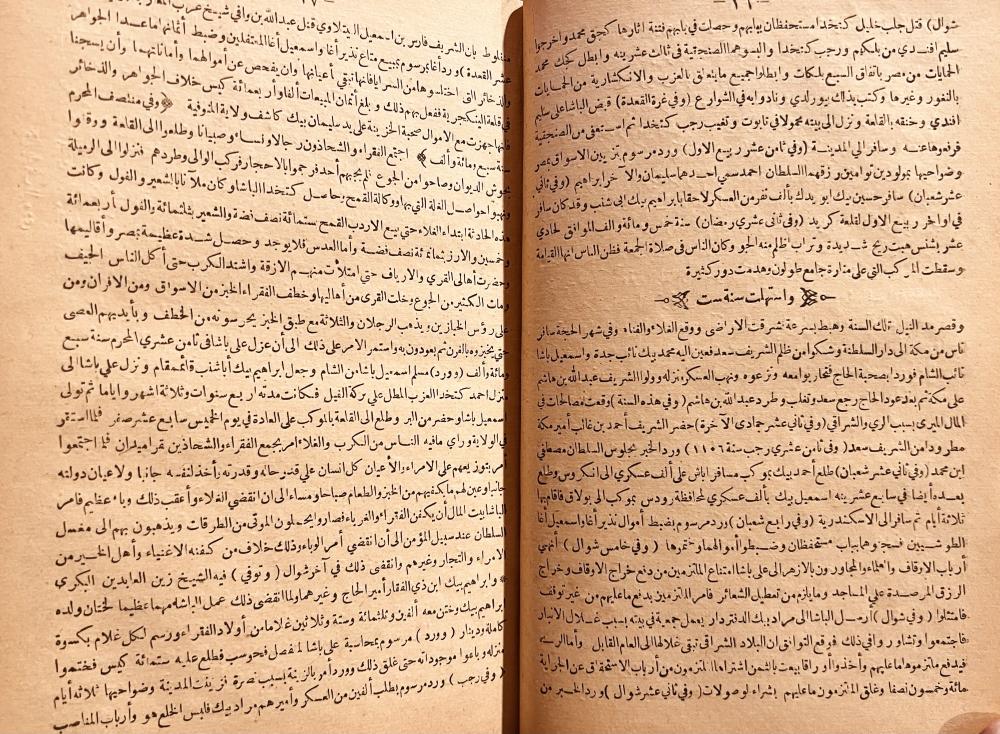 شوال) قتل جلب خليل كتخدا مستحفظان ببابهم وحصلت في بابهم فتنة اثارها كجك محمد واخرجوا
سليم افندي من بلكهم ورجب كتخدا والبسوهما الصنجقية في ثالث عشرينه وابطل كجك محمد
الحمايات من مصر باتفاق السبع بلكات وابطلوا جميع ما يتعلق بالعزب والانكشارية من الحمايات
بالثغور وغيرها وكتب بذلك بيورلدي ونادوا به في الشوارع (وفي غرة القعدة) قبض الباشا على سليم
افندي وخنقه بالقلعة ونزل الى بيته محمولا في تابوت وتغيب رجب كتخدا ثم استعفى من الصنجقية
فرفعوها عنه وسافر الى المدينة (وفي ثامن عشر ربيع الاول) ورد مرسوم بتزيين الاسواق بمصر
وضواحيها بمولودين توأمين رزقهما السلطان احمد سمى احدهما سليمان والآخر ابراهيم (وفي ثاني
عشر شعبان) سافر حسين بيك ابو يدك بألف نفر من العسكر لاحقا بابراهيم بيك ابي شنب وقد كان سافر
في اواخر ربيع الاول لقلعة كريد (وفي ثاني عشري رمضان) سنة خمس ومائة وألف الموافق لحادي
عشر بشنس هبت ريح شديدة وتراب اظلم منه الجو وكان الناس في صلاة الجمعة فظن الناس انها القيامة
وسقطت المركب التي على منارة جامع طولون وهدمت دور كثيرة
واستهلت سنة ست
وقصر مد النيل تلك السنة وهبط بسرعة فشرقت الاراضي ووقع الغلاء والفناء وفي شهر الحجة سافر
ناس من مكة الى دار السلطنة وشكوا من ظلم الشريف سعد فعين اليه محمد بيك نائب جدة واسمعيل باشا
نائب الشام فوردا بصحبة الحاج فتحاربوا معه ونزعوه ونهب العسكر منزله وولوا الشريف عبد الله بن هاشم
على مكة ثم بعد عود الحاج رجع سعد وتغلب وطرد عبد الله بن هاشم (وفي هذه السنة) وقعت مصالحات في
المال الميري بسبب الري والشراقي (وفي ثاني عشر جمادى الآخرة) حضر الشريف أحمد بن غالب أمير مكة
مطرودا من الشريف سعد (وفي ثامن عشري رجب سنة ١١٠٦) ورد الخبر بجلوس السلطان مصطفى
ابن محمد (وفي ثاني عشر شعبان) طلع أحمد بيك بموكب مسافر اباش على ألف عسكري الى انكروس وطلع
بعده أيضا في سابع عشرينه اسمعيل بيك بألف عسكري لمحافظة رودس بموكب الى بولاق فأقام بها
ثلاثة أيام ثم سافر الى الاسكندرية (وفي رابع شعبان) ورد مرسوم بضبط أموال نذير أغا واسمعيل أغا
الطوشيين فسجنوهما بباب مستحفظان وضبطوا أموالهما وختموها (وفي خامس شوال) أنهى
أرباب الاوقاف والعلماء والمجاورون بالازهر الى علي باشا امتناع الملتزمين من دفع خراج الاوقاف وخراج
الرزق المرصدة على المساجد وما يلزم من تعطيل الشعائر فأمر الملتزمين بدفع ما عليهم من غير توقف
فامتثلوا (وفي شوال) أرسل الباشا الى مراد بيك الدفتردار بعمل جمعية في بيته بسبب غلال الانبار
فاجتمعوا وتشاوروا في ذلك فوقع التوافق ان البلاد الشراقي تبقى غلالها الى العام القابل وأما الري
فيدفع ملتزموها ما عليهم وأخذوا أوراقا بيعت بالثمن اشتراها الملتزمون من أرباب الاستحقاق عن الجراية
مائة وخمسون نصفا وغلق الملتزمون ما عليهم بشراء الوصولات (وفي ثاني عشر شوال) ورد الخبر من
منفلوط بأن الشريف فارس بن اسمعيل التيتلاوي قتل عبد الله بن وافي شيخ عرب المغاربة
عشر القعدة) ورد أغا بمرسوم ببيع متاع نذير أغا واسمعيل أغا المعتقلين وضبط أثمانها ما عدا الجواهر
والذخائر التي اختلسوها من السرايا فانها تبقى أعيانها وان يفحص عن أموالهما وأماناتهما وأن يسجنا
في قلعة الينكجرية ففعل بهم ذلك وبلغ أثمان المبيعات ألفا وأربعمائة كيس خلاف الجواهر والذخائر
فانها جهزت مع الاموال صحبة الخزينة على يد سليمان بيك كاشف ولاية المنوفية (وفي منتصف المحرم
سنة سبع ومائة وألف) اجتمع الفقراء والشحاذون رجالا ونساء وصبيانا وطلعوا الى القلعة ووقفوا
بحوش الديوان وصاحوا من الجوع فلم يجبهم أحد فرجموا بالاحجار فركب الوالي وطردهم فنزلوا الى الرميلة
ونهبوا حواصل الغلة التي بها ووكالة القمح وحاصل كتخدا الباشا وكان ملآنا بالشعير والفول وكانت
هذه الحادثة ابتداء الغلاء حتى بيع الاردب القمح بستمائة نصف فضة والشعير بثلثمائة والفول أربعمائة
وخمسين والارز بثمانمائة نصف فضة وأما العدس فلا يوجد وحصل شدة عظيمة بمصر وأقاليمها
وحضرت أهالي القرى والارياف حتى امتلأت منهم الازقة واشتد الكرب حتى أكل الناس الجيف
ومات الكثير من الجوع وخلت القرى من أهاليها وخطف الفقراء الخبز من الاسواق ومن الافران ومن
على رؤس الخبازين ويذهب الرجلان والثلاثة مع طبق الخبز يحرسونه من الخطف وبأيديهم العصي
حتى يخبزوه بالفرن ثم يعودون به واستمر الامر على ذلك الى أن عزل علي باشا في ثامن عشري المحرم سنة سبع
ومائة وألف (وورد) مسلم اسمعيل باشا من الشام وجعل ابراهيم بيك أبا شنب قائمقام ونزل علي باشا الى
منزل أحمد كتخدا العزب المطل على بركة الفيل فكانت مدته أربع سنوات وثلاثة أشهر وأياما ثم تولى
اسمعيل باشا وحضر من البر وطلع الى القلعة بالموكب على العادة في يوم الخميس سابع عشر صفر فلما استقر
في الولاية ورأى ما فيه الناس من الكرب والغلاء أمر بجمع الفقراء والشحاذين بقراميدان فلما اجتمعوا
أمر بتوزيعهم على الامراء والاعيان كل انسان على قدر حاله وقدرته وأخذ لنفسه جانبا ولاعيان دولته
جانبا وعين لهم ما يكفيهم من الخبز والطعام صباحا ومساء الى ان انقضى الغلاء وأعقب ذلك وباء عظيم فأمر
الباشا بيت المال أن يكفن الفقراء والغرباء فصاروا يحملون الموتى من الطرقات ويذهبون بهم الى مغسل
السلطان عند سبيل المؤمن الى أن انقضى أمر الوباء وذلك خلاف من كفنه الاغنياء وأهل الخير من
الامراء والتجار وغيرهم وانقضى ذلك في آخر شوال (وتوفي) فيه الشيخ زين العابدين البكري
وابراهيم بيك ابن ذي الفقار أمير الحاج وغيرهما ولما انقضى ذلك عمل الباشا مهما عظيما لختان ولده
ابراهيم بيك وختن معه ألفين وثلثمائة وستة وثلاثين غلاما من أولاد الفقراء ورسم لكل غلام بكسوة
كاملة ودينار (وورد) مرسوم بمحاسبة علي باشا المنفصل فحوسب فطلع عليه ستمائة كيس فختموا
منزله وباعوا موجوداته حتى غلق ذلك وورد أمر بالزينة بسبب نصرة فزينت المدينة وضواحيها ثلاثة أيام
(وفي رجب) ورد مرسوم بطلب ألفين من العسكر وأميرهم مراد بيك فلبس الخلع هو وأرباب المناصب